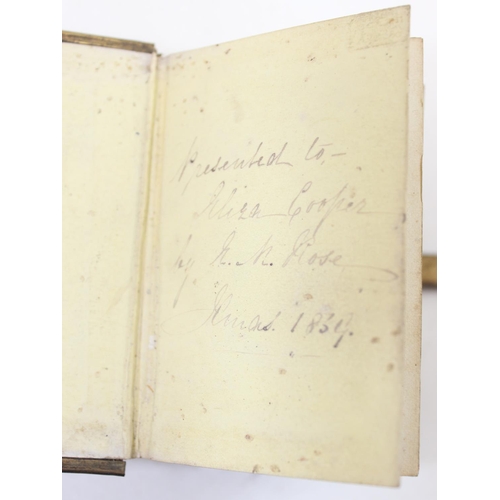 Presented to,—
Eliza Cooper
by Rose
Xmas. 1859.